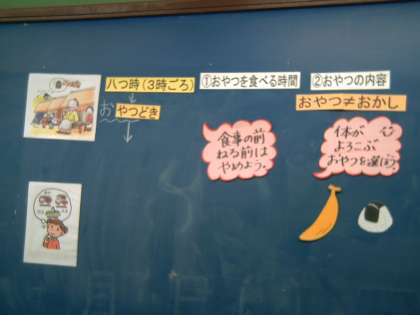 八つ時(3時ごろ)
おやつどき
①おやつを食べる時間
食事の前
ねる前は
やめよう。
②おやつの内容
おやつ≠おかし
体が
よろこぶ
おやつを選ぼう。